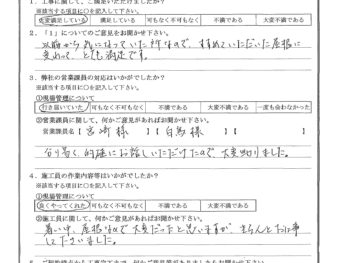 1．工事に関して、ご満足いただけましたか？
※該当する項目に○を記入して下さい。
大変満足している 満足している 可もなく不可もなく 不満である 大変不満である
2．「1」についてのご意見をお聞かせ下さい。
以前から気になっていた所なので、すすめていただいた屋根に
変わって、とても満足です。
3．弊社の営業課員の対応はいかがでしたか？
※該当する項目に○を記入して下さい。
①現場管理について
行き届いていた 可もなく不可もなく 不満である 大変不満である 一度も会わなかった
②営業課員に関して、何かご意見があればお聞かせ下さい。
営業課員名【宮崎 様 】【白鳥 様 】
分り易く、的確にお話しいただけたので、大変助りました。
4．施工員の作業内容等はいかがでしたか？
※該当する項目に○を記入して下さい。
①現場管理について
良くやってくれた 可もなく不可もなく 不満である 大変不満である
②施工員に関して、何かご意見があればお聞かせ下さい。
暑い中、屋根なので大変だったと思いますが、きちんとお仕事
して下さいました。